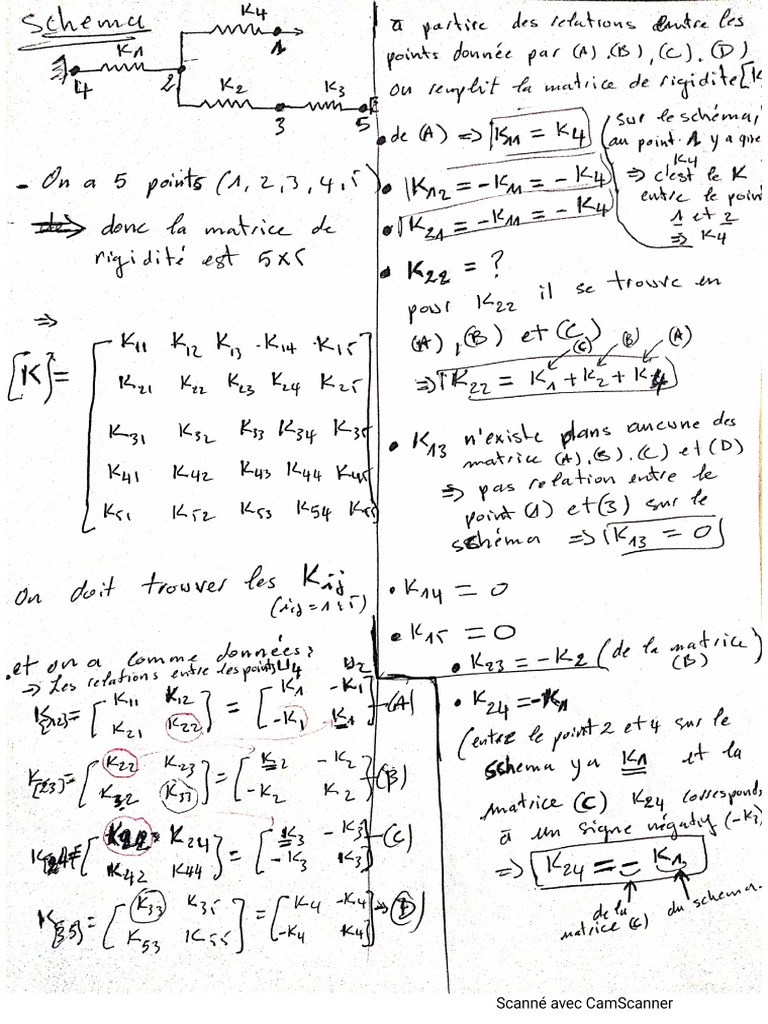 Schema
K4
K1
1
4
2
K2
K3
3
5
- On a 5 points (1, 2, 3, 4, 5)
=> donc la matrice de
rigidité est 5x5
=>
[K] =
K11 K12 K13 K14 K15
K21 K22 K23 K24 K25
K31 K32 K33 K34 K35
K41 K42 K43 K44 K45
K51 K52 K53 K54 K55
On doit trouver les Kij
(i,j = 1 à 5)
. et on a comme données:
=> Les relations entre les points
K[12] = [K11 K12 = [K1 -K1 (A)
K21 K22] -K1 K1]
K[23] = [K22 K23 = [K2 -K2 (B)
K32 K33] -K2 K2]
K[24] = [K22 K24 = [K3 -K3 (C)
K42 K44] -K3 K3]
K[35] = [K33 K35 = [K4 -K4 => (D)
K53 K55] -K4 K4]
à partire des relations entre les
points donnée par (A), (B), (C), (D)
on remplit la matrice de rigidité [K
• de (A) => K11 = K4
(sur le schéma,
au point 1 y a que
K4
=> c'est le K
entre le point
1 et 2
=> K4
• K12 = -K11 = -K4
• K21 = -K11 = -K4
• K22 = ?
pour K22 il se trouve en
(A), (B) et (C)
(C) (B) (A)
=> K22 = K1 + K2 + K4
• K13 n'existe dans aucune des
matrice (A), (B), (C) et (D)
=> pas relation entre le
point (1) et (3) sur le
schéma => K13 = 0
• K14 = 0
• K15 = 0
• K23 = -K2 (de la matrice)
(B)
• K24 = -K1
(entre le point 2 et 4 sur le
schema y a K1 et la
matrice (C) K24 correspond
à un signe négatif (-K3)
=> K24 = - K1
de la
matrice (C)
du schema
Scanné avec CamScanner